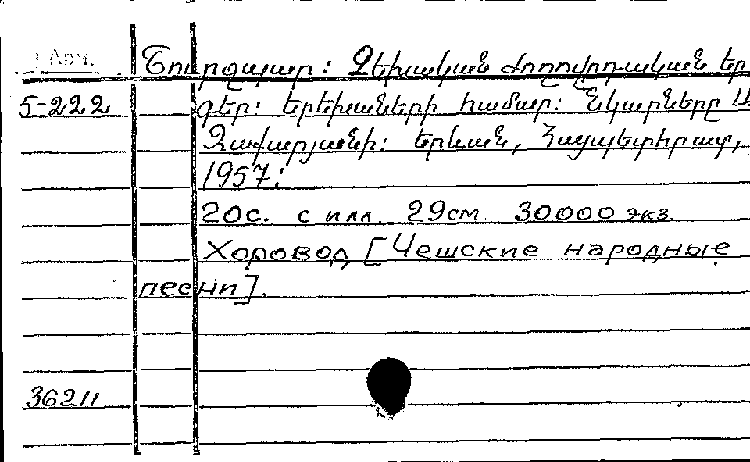 1 Арм. Շուրջպար: Չեխական ժողովրդական եր
5-222 գեր: Երեխաների համար: Նկարները Ա
Չաքարյանի: Երևան, Հայպետհրատ,
1957:
20с. с илл. 29см. 30000 экз.
Хоровод [Чешские народные
песни].
36211